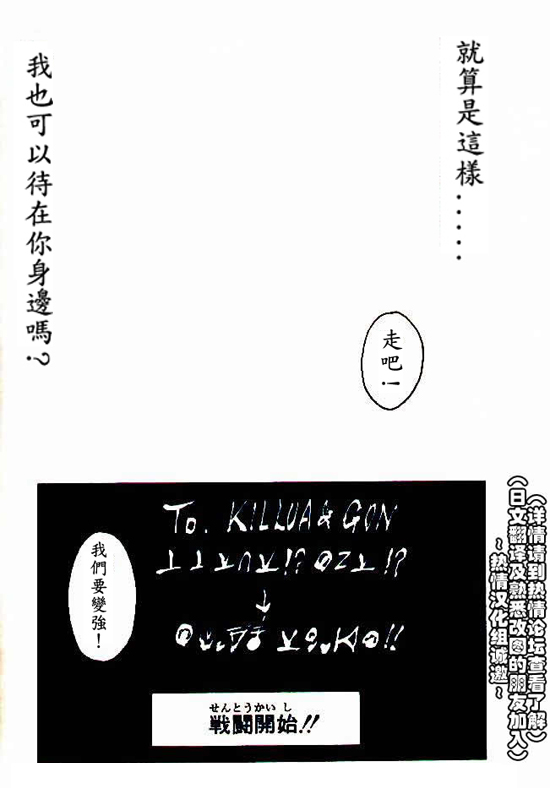 就算是這樣......
我也可以待在你身邊嗎?
走吧!
To. KILLUA & GON
我們要變強!
せんとうかいし
戦闘開始!!
(详情请到热情论坛查看了解)
(日文翻译及熟悉改图的朋友加入)
~热情汉化组诚邀~